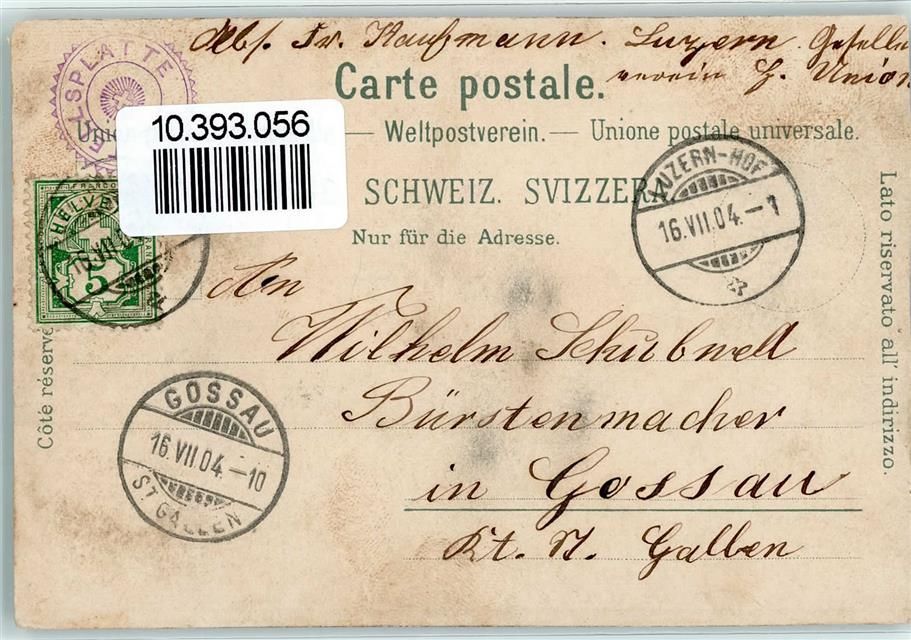 Abs. Fr. Kaufmann. Luzern. Geselle
verein z. Union
ELSPLATTE
Carte postale.
10.393.056
Union — Weltpostverein. — Unione postale universale.
SCHWEIZ. SVIZZERA
Nur für die Adresse.
HELVE
5
16.VII
LUZERN-HOF
16.VII.04.-1
An
Wilhelm Schubwell
Bürstenmacher
in Gossau
Kt. St. Gallen
GOSSAU
16.VII.04.-10
ST GALLEN
Côté réservé
Lato riservato all' indirizzo.